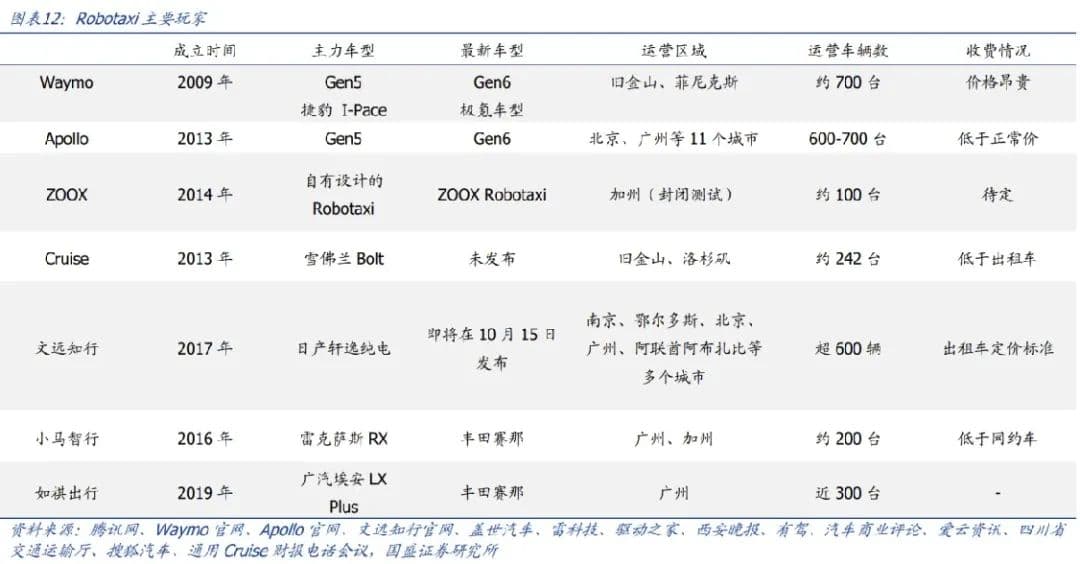 图表12：Robotaxi主要玩家
成立时间 主力车型 最新车型 运营区域 运营车辆数 收费情况
Waymo 2009年 Gen5 Gen6 旧金山、菲尼克斯 约700台 价格昂贵
捷豹 I-Pace 极氪车型
Apollo 2013年 Gen5 Gen6 北京、广州等11个城市 600-700台 低于正常价
自有设计的
ZOOX 2014年 Robotaxi ZOOX Robotaxi 加州（封闭测试） 约100台 待定
Cruise 2013年 雪佛兰Bolt 未发布 旧金山、洛杉矶 约242台 低于出租车
南京、鄂尔多斯、北京、
文远知行 2017年 日产轩逸纯电 即将在10月15日 广州、阿联酋阿布扎比等 超600辆 出租车定价标准
发布 多个城市
小马智行 2016年 雷克萨斯RX 丰田赛那 广州、加州 约200台 低于网约车
广汽埃安LX
如祺出行 2019年 Plus 丰田赛那 广州 近300台 -
资料来源：腾讯网、Waymo官网、Apollo官网、文远知行官网、盖世汽车、雷科技、驱动之家、西安晚报、有驾、汽车商业评论、爱云资讯、四川省
交通运输厅、搜狐汽车、通用Cruise财报电话会议，国盛证券研究所